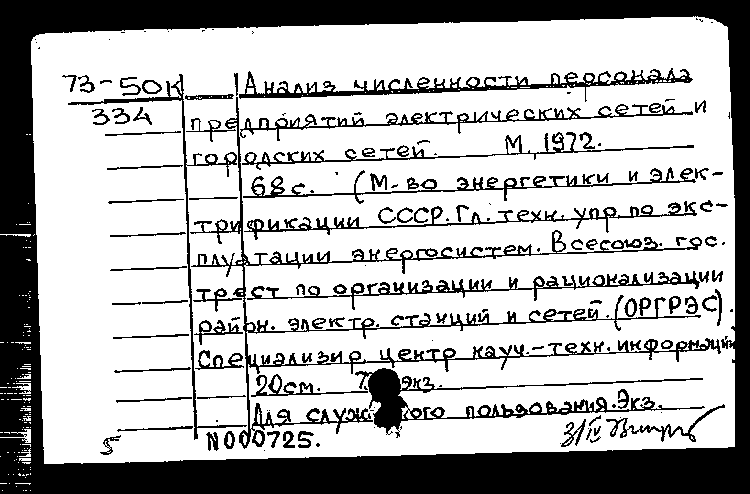 73-50к Анализ численности персонала
334 предприятий электрических сетей и
городских сетей. М., 1972.
68 с. (М-во энергетики и элек-
трификации СССР. Гл. техн. упр. по экс-
плуатации энергосистем. Всесоюз. гос.
трест по организации и рационализации
район. электр. станций и сетей. (ОРГРЭС).
Специализир. центр науч.-техн. информации
20см. экз.
Для служ ого пользования. Экз.
5 N000725. 3/IV